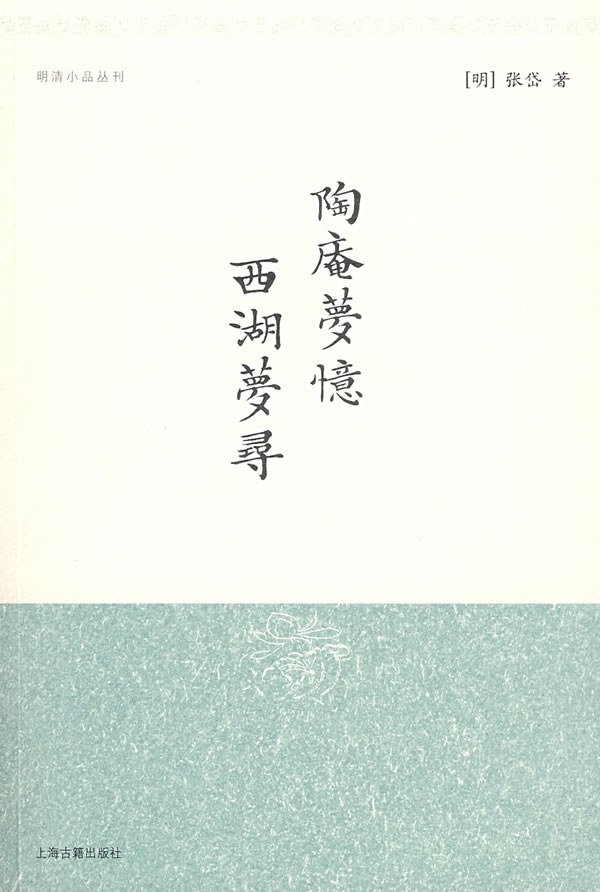 明清小品丛刊
[明] 张岱 著
陶庵夢憶
西湖夢尋
上海古籍出版社